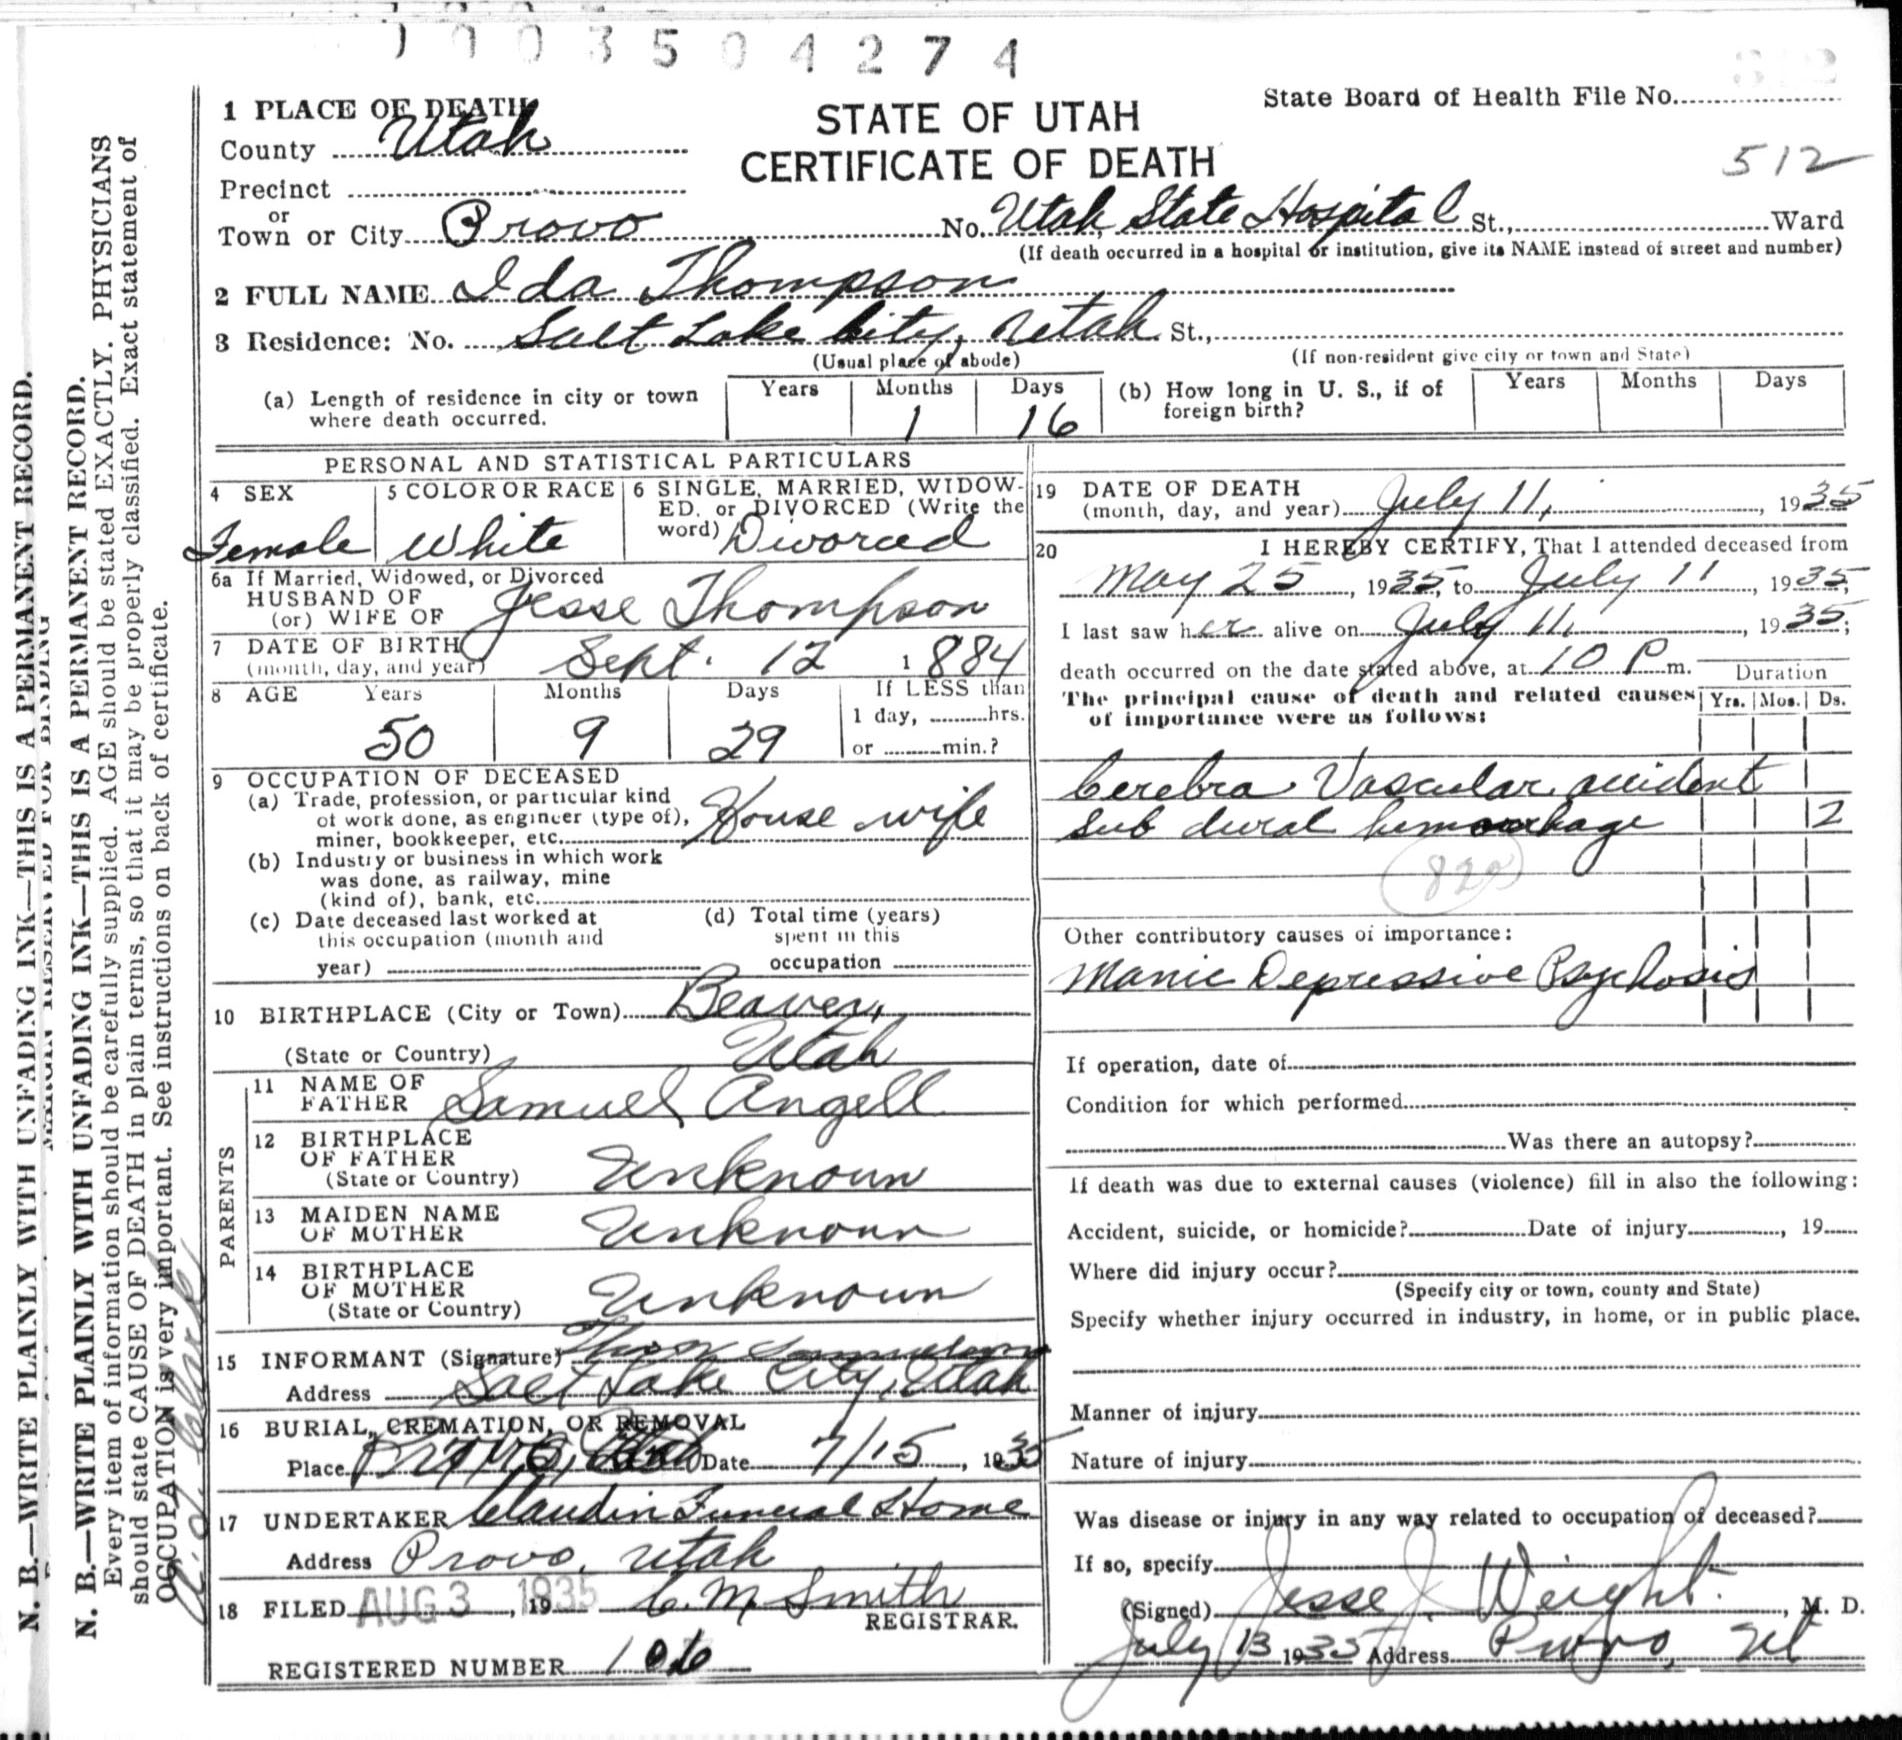 003504274
1 PLACE OF DEATH
County Utah
Precinct
or
Town or City Provo No. Utah State Hospital St., Ward
(If death occurred in a hospital or institution, give its NAME instead of street and number)
STATE OF UTAH
CERTIFICATE OF DEATH
State Board of Health File No.
512
2 FULL NAME Ida Thompson
3 Residence: No. Salt Lake City, Utah St.,
(Usual place of abode) (If non-resident give city or town and State)
(a) Length of residence in city or town where death occurred. Years Months 1 Days 16
(b) How long in U. S., if of foreign birth? Years Months Days
PERSONAL AND STATISTICAL PARTICULARS
4 SEX Female
5 COLOR OR RACE White
6 SINGLE, MARRIED, WIDOWED, or DIVORCED (Write the word) Divorced
6a If Married, Widowed, or Divorced
HUSBAND OF
(or) WIFE OF Jesse Thompson
7 DATE OF BIRTH
(month, day, and year) Sept. 12 1884
8 AGE Years 50 Months 9 Days 29
If LESS than
1 day, hrs.
or min.?
9 OCCUPATION OF DECEASED
(a) Trade, profession, or particular kind
of work done, as engineer (type of),
miner, bookkeeper, etc. House wife
(b) Industry or business in which work
was done, as railway, mine
(kind of), bank, etc.
(c) Date deceased last worked at
this occupation (month and
year)
(d) Total time (years)
spent in this
occupation
10 BIRTHPLACE (City or Town) Beaver,
(State or Country) Utah
PARENTS
11 NAME OF
FATHER Samuel Angell
12 BIRTHPLACE
OF FATHER
(State or Country) Unknown
13 MAIDEN NAME
OF MOTHER Unknown
14 BIRTHPLACE
OF MOTHER
(State or Country) Unknown
15 INFORMANT (Signature)
Address Salt Lake City, Utah
16 BURIAL, CREMATION, OR REMOVAL
Place Provo, Date 7/15, 1935
17 UNDERTAKER Claudin Funeral Home
Address Provo, Utah
18 FILED AUG 3, 1935 C. M. Smith
REGISTRAR.
REGISTERED NUMBER 106
19 DATE OF DEATH
(month, day, and year) July 11, 1935
20 I HEREBY CERTIFY, That I attended deceased from
May 25, 1935, to July 11, 1935;
I last saw her alive on July 11, 1935;
death occurred on the date stated above, at 10 P m.
Duration
The principal cause of death and related causes
of importance were as follows:
Yrs. Mos. Ds.
Cerebra Vascular accident
Sub dural hemorrhage 2
Other contributory causes of importance:
Manic Depressive Psychosis
If operation, date of
Condition for which performed
Was there an autopsy?
If death was due to external causes (violence) fill in also the following:
Accident, suicide, or homicide? Date of injury, 19
Where did injury occur?
(Specify city or town, county and State)
Specify whether injury occurred in industry, in home, or in public place.
Manner of injury
Nature of injury
Was disease or injury in any way related to occupation of deceased?
If so, specify
(Signed) Jesse J. Weight, M. D.
July 13 1935 Address Provo, Ut
N. B.—WRITE PLAINLY WITH UNFADING INK—THIS IS A PERMANENT RECORD.
MARGIN RESERVED FOR BINDING
N. B.—WRITE PLAINLY WITH UNFADING INK—THIS IS A PERMANENT RECORD.
Every item of information should be carefully supplied. AGE should be stated EXACTLY. PHYSICIANS
should state CAUSE OF DEATH in plain terms, so that it may be properly classified. Exact statement of
OCCUPATION is very important. See instructions on back of certificate.